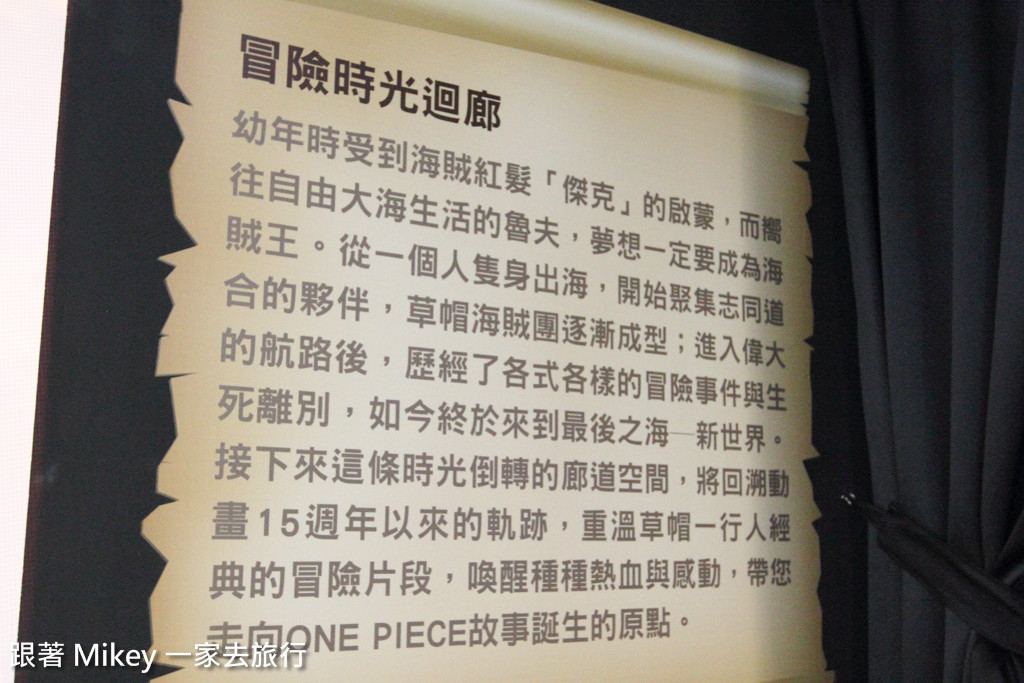 冒險時光迴廊
幼年時受到海賊紅髮「傑克」的啟蒙，而嚮
往自由大海生活的魯夫，夢想一定要成為海
賊王。從一個人隻身出海，開始聚集志同道
合的夥伴，草帽海賊團逐漸成型；進入偉大
的航路後，歷經了各式各樣的冒險事件與生
死離別，如今終於來到最後之海─新世界。
接下來這條時光倒轉的廊道空間，將回溯動
畫15週年以來的軌跡，重溫草帽一行人經
典的冒險片段，喚醒種種熱血與感動，帶您
走向ONE PIECE故事誕生的原點。
跟著 Mikey 一家去旅行